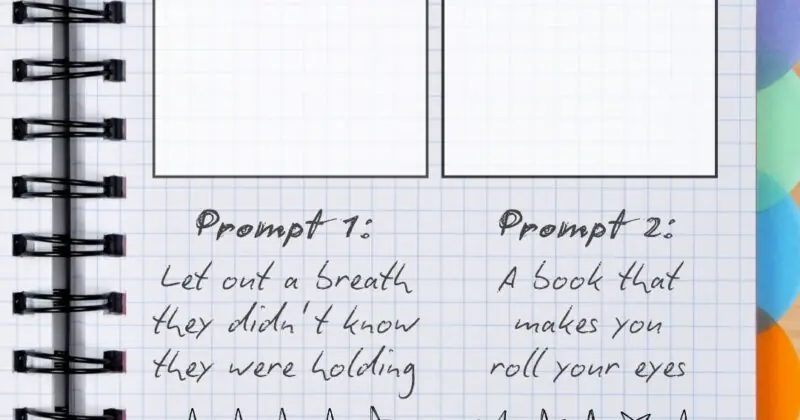 Prompt 1:
Let out a breath
they didn't know
they were holding
Prompt 2:
A book that
makes you
roll your eyes